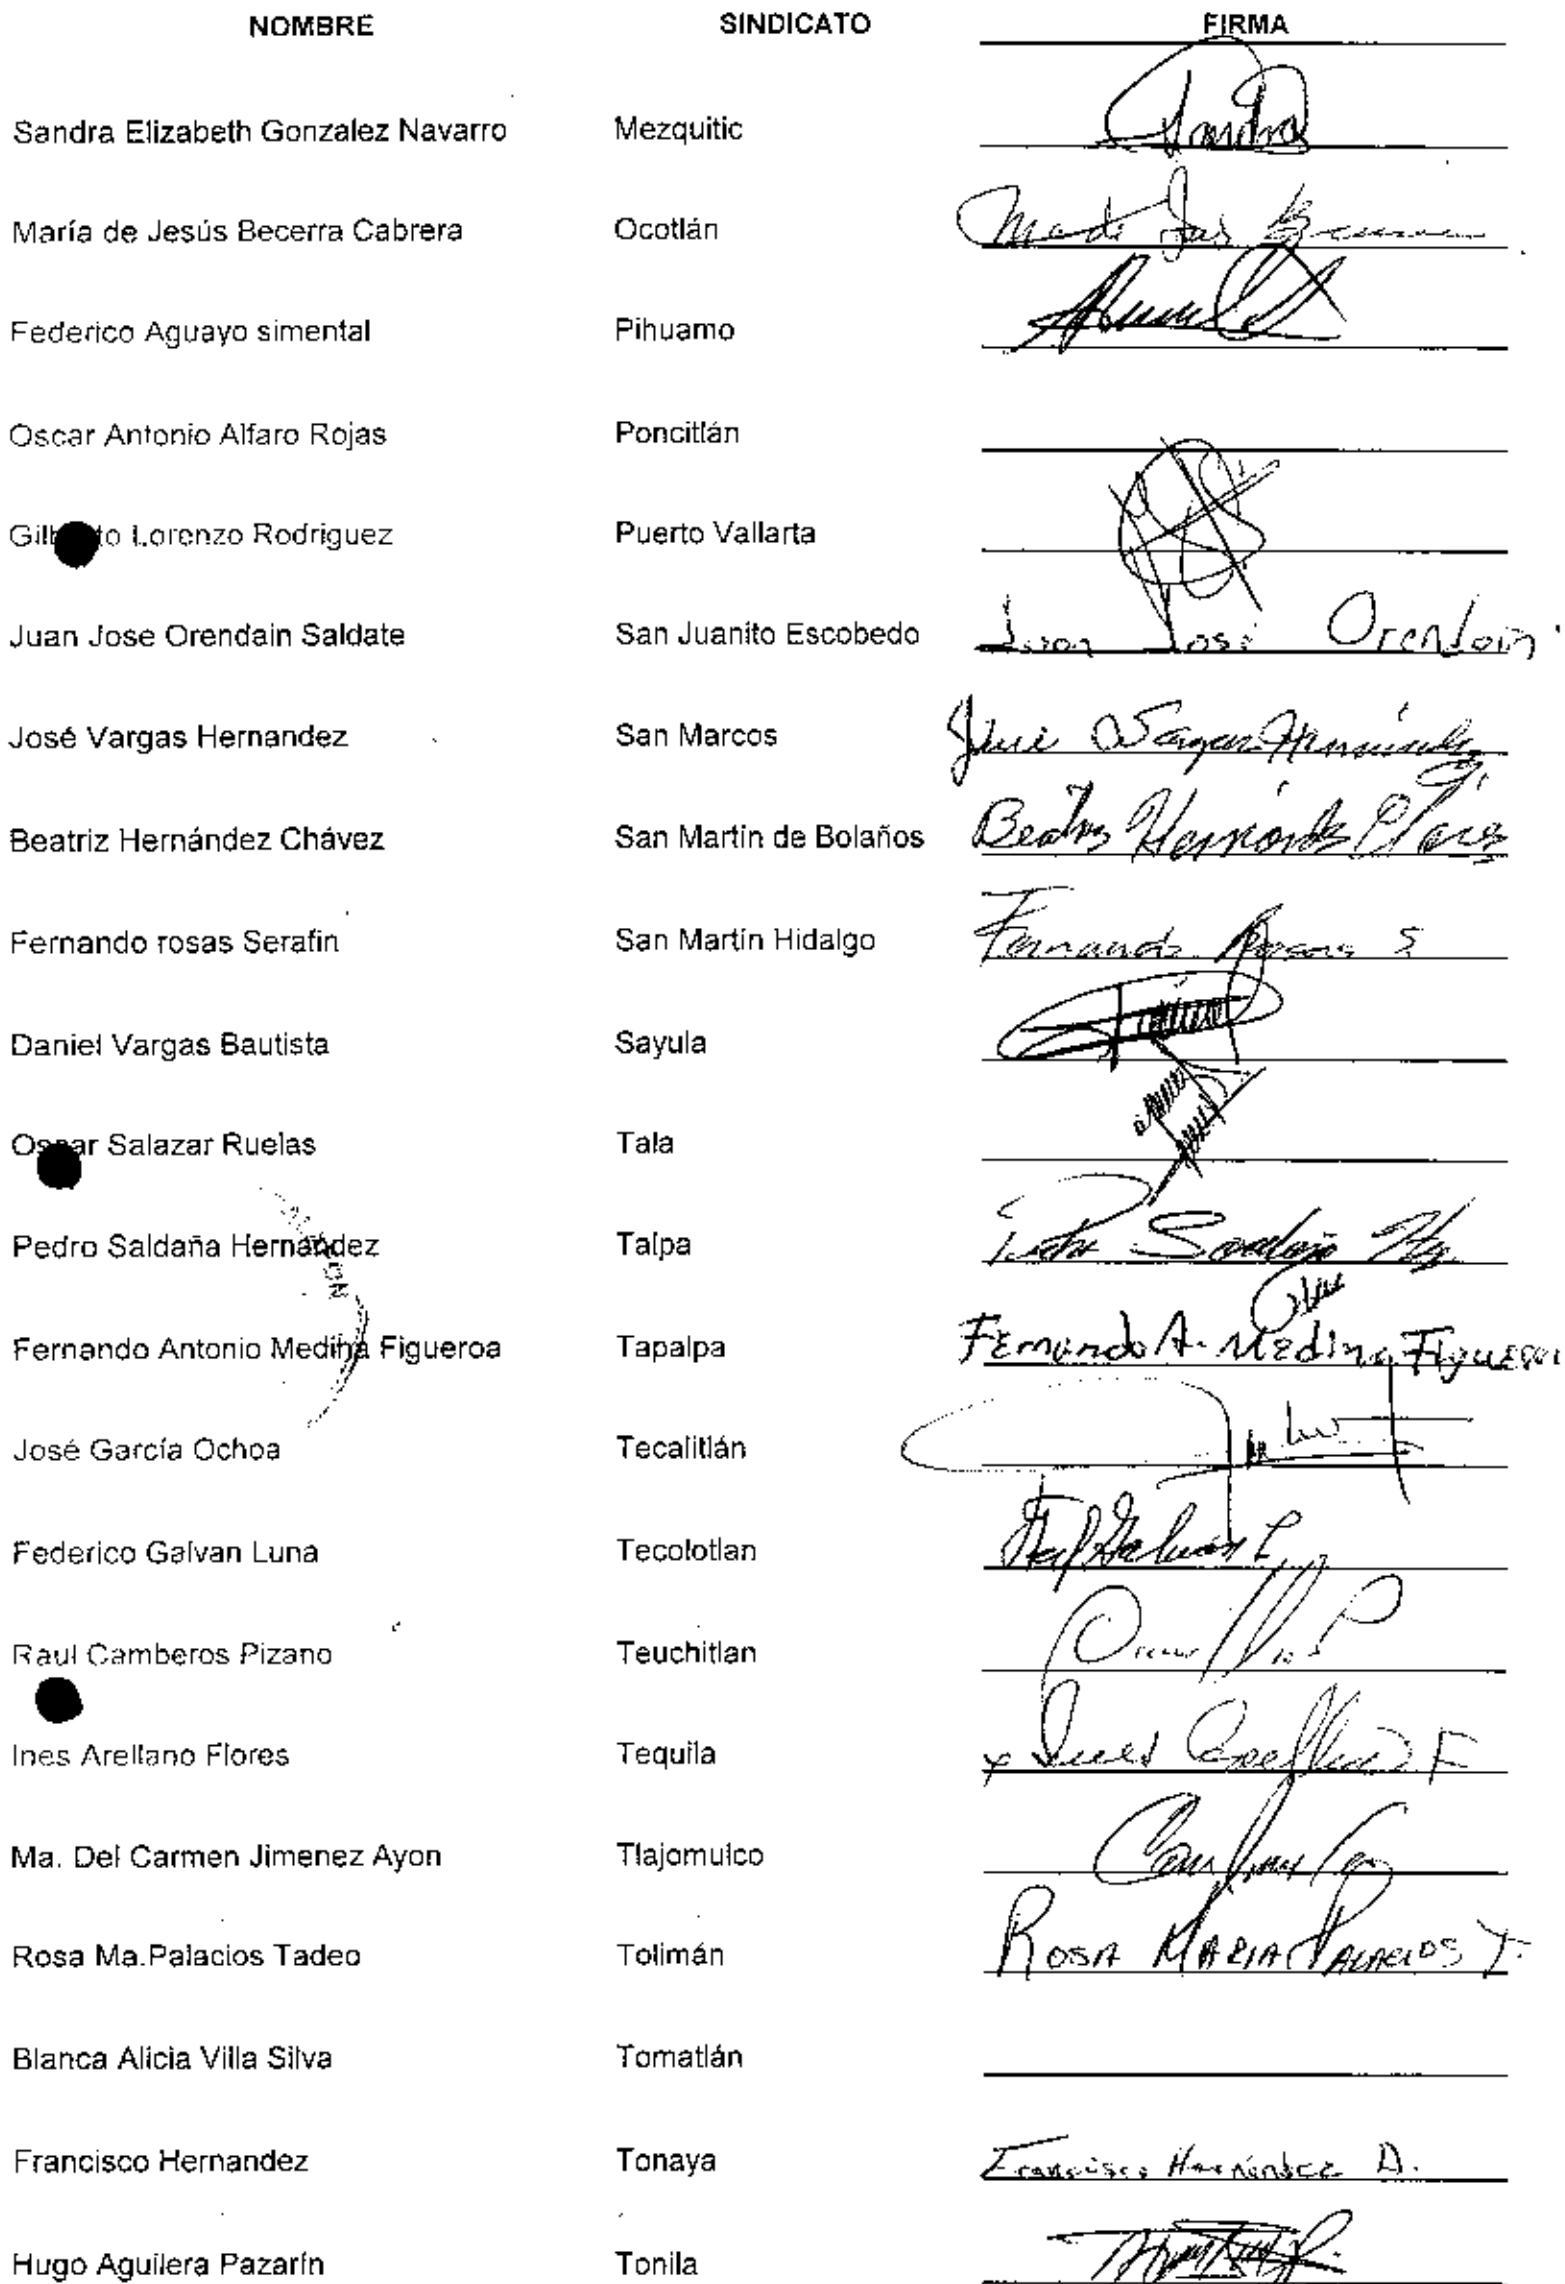 NOMBRE SINDICATO FIRMA
Sandra Elizabeth Gonzalez Navarro Mezquitic Sandra
María de Jesús Becerra Cabrera Ocotlán
Federico Aguayo simental Pihuamo
Oscar Antonio Alfaro Rojas Poncitlán
Lorenzo Rodriguez Puerto Vallarta
Juan Jose Orendain Saldate San Juanito Escobedo Juan José Orendain
José Vargas Hernandez San Marcos José Vargas Hernández
Beatriz Hernández Chávez San Martín de Bolaños Beatriz Hernández Chávez
Fernando rosas Serafin San Martín Hidalgo Fernando Rosas S
Daniel Vargas Bautista Sayula
Oscar Salazar Ruelas Tala
Pedro Saldaña Hernández Talpa Pedro Saldaña Hdz
Fernando Antonio Medina Figueroa Tapalpa Fernando A. Medina Figueroa
José García Ochoa Tecalitlán
Federico Galvan Luna Tecolotlan Galván L
Raul Camberos Pizano Teuchitlan
Ines Arellano Flores Tequila x Ines Arellano F
Ma. Del Carmen Jimenez Ayon Tlajomulco
Rosa Ma.Palacios Tadeo Tolimán ROSA MARIA PALACIOS T.
Blanca Alicia Villa Silva Tomatlán
Francisco Hernandez Tonaya Francisco Hernández D.
Hugo Aguilera Pazarín Tonila